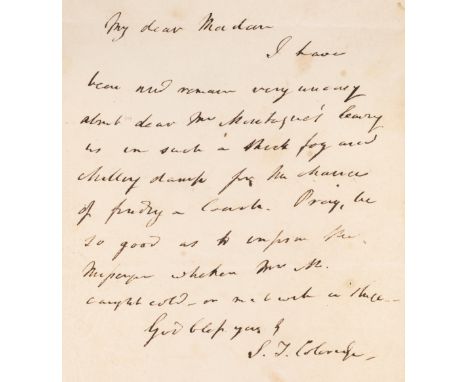 My dear Madam
I have
been and remain very uneasy
about dear Mrs Montague's leaving
us in such a thick fog and
chilly damp for the chance
of finding a Coach. Pray, be
so good as to inform the
Messenger whether Mrs M.
caught cold - or met with a Stage -
God bless you &
S. T. Coleridge -